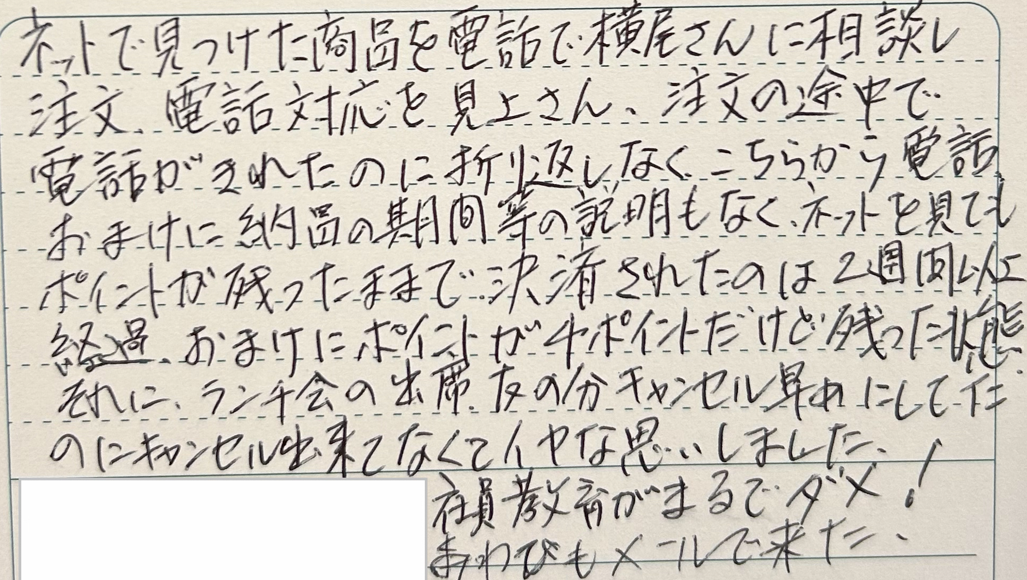 ネットで見つけた商品を電話で横尾さんに相談し
注文、電話対応を見上さん、注文の途中で
電話がきれたのに折り返しなく、こちらから電話、
おまけに納品の期間等の説明もなく、ネットを見ても
ポイントが残ったままで決済されたのは2週間以上
経過、おまけにポイントが4ポイントだけど残った状態。
それに、ランチ会の出席、友の分キャンセル早めにしてた
のにキャンセル出来てなくてイヤな思いしました、
社員教育がまるでダメ!
おわびもメールで来た.